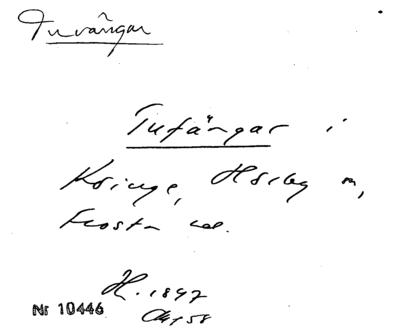 Tuvängar
Tufängar i
Kringe, Hörby m,
Frosta hd.
H. 1897
s. 58
Nr 10446